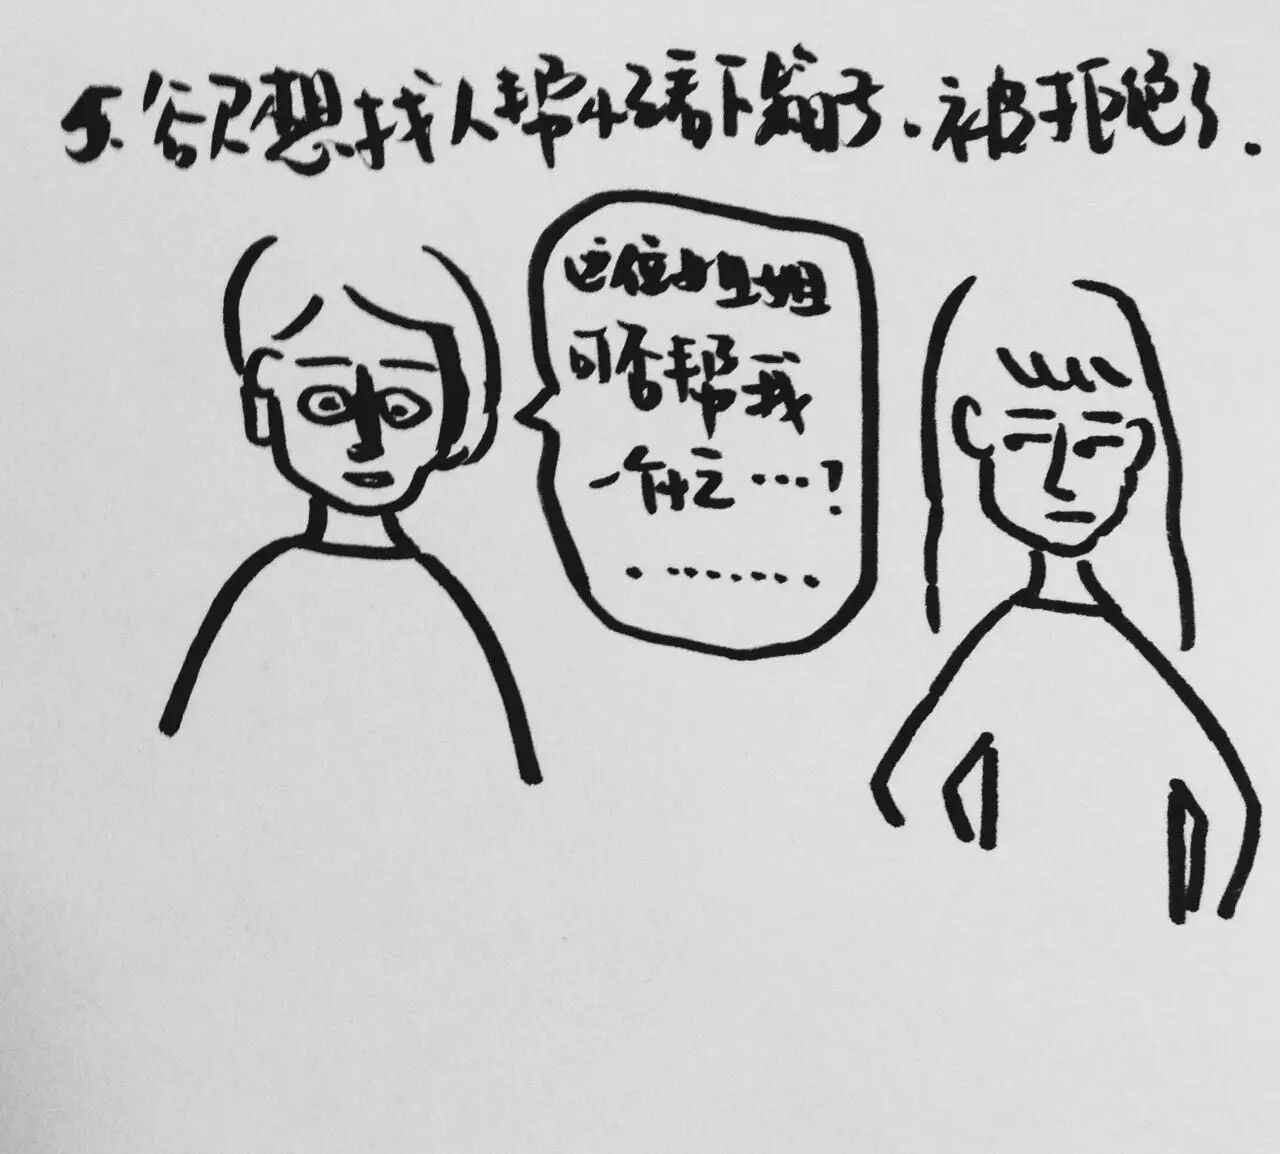 5. 想找人帮忙看下箱子、被拒绝了.
这位小姐姐
可否帮我
一个忙…!
........